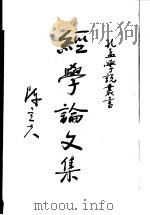 孔孟學說叢書
經學論文集
陳立夫